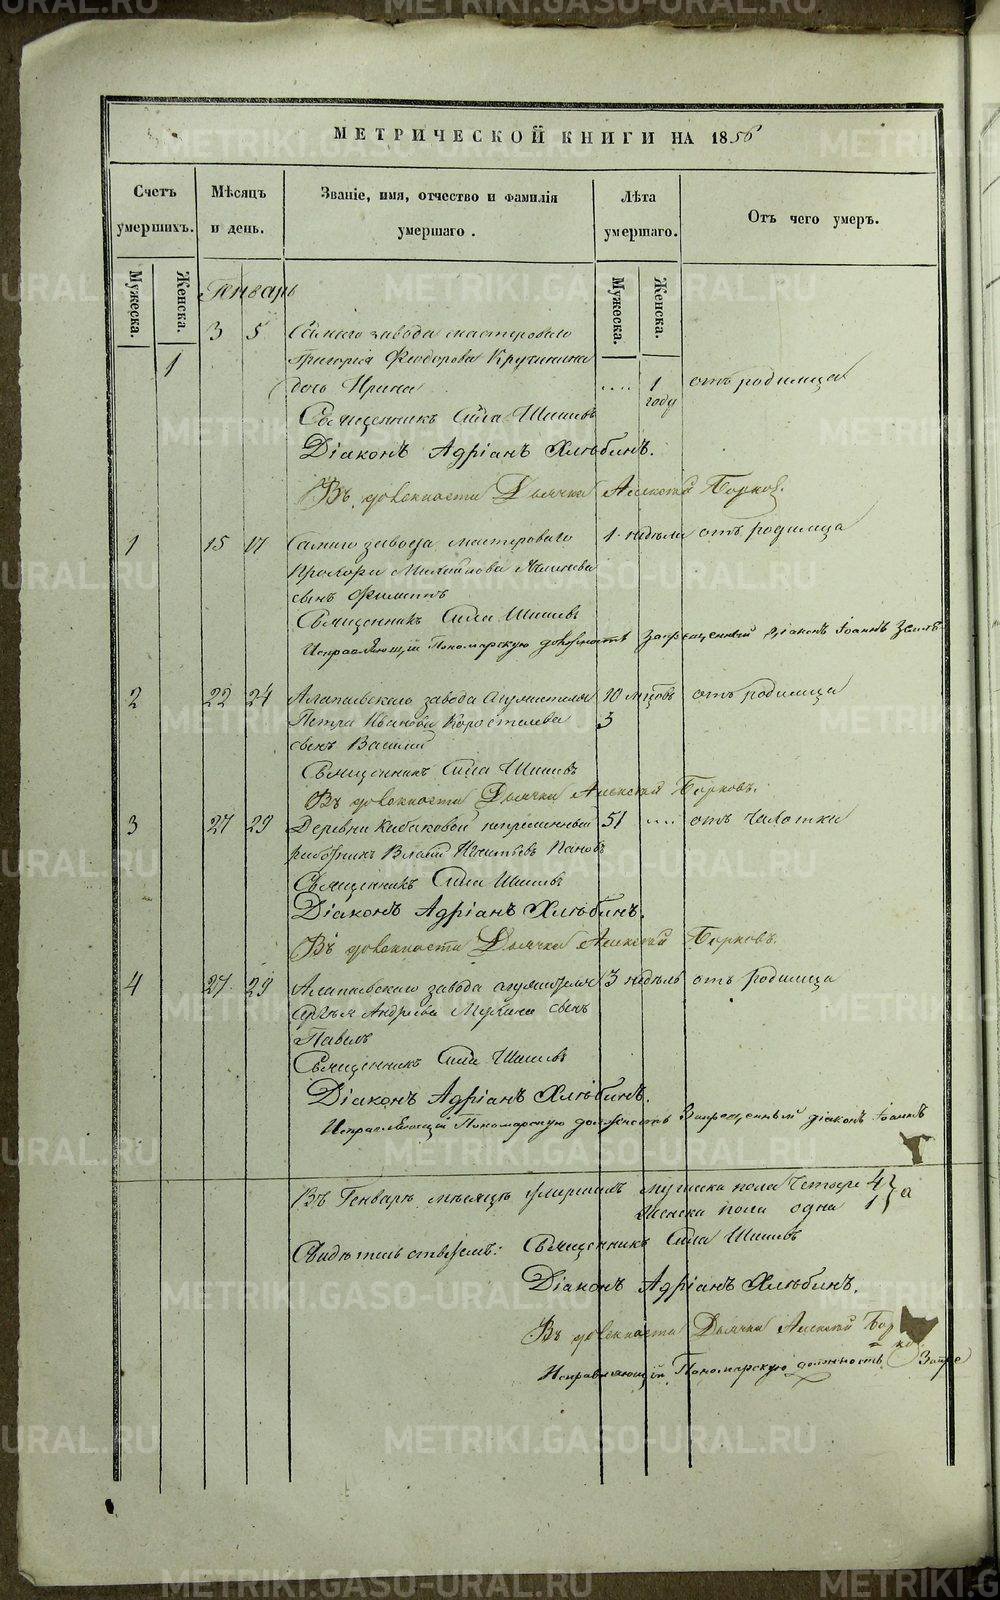 МЕТРИЧЕСКОЙ КНИГИ НА 1856
Счетъ умершихъ.
Мѣсяцъ и день.
Званіе, имя, отчество и фамилія умершаго.
Лѣта умершаго.
Отъ чего умеръ.
Мужеска.
Женска.
Мужеска.
Женска.
Генварь
3 5 завода мастероваго
1 Григорія Феодорова Кручинина
дочь Ирина .... 1 году отъ родимца
Священникъ Сила Шишевъ
Діаконъ Адріанъ Хлѣбинъ.
Въ должности Дьячка Алексѣй Борковъ.
1 15 17 завода мастероваго 1 недѣли отъ родимца
Прохора Михайлова
сынъ Филиппъ
Священникъ Сила Шишевъ
Исправляющій Пономарскую должность Запрещенный діаконъ Іоаннъ
2 22 24 Алапаевскаго завода 10 отъ родимца
Петра Иванова Коростелева 3
сынъ Василій
Священникъ Сила Шишевъ
Въ должности Дьячка Алексѣй Борковъ.
3 27 29 Деревни Кабаковой непременный 51 .... отъ чахотки
работникъ Власій Игнатьевъ Пановъ
Священникъ Сила Шишевъ
Діаконъ Адріанъ Хлѣбинъ.
Въ должности Дьячка Алексѣй Борковъ.
4 27 29 Алапаевскаго завода 3 недѣль отъ родимца
Андреева Мухина сынъ
Павелъ
Священникъ Сила Шишевъ
Діаконъ Адріанъ Хлѣбинъ.
Исправляющій Пономарскую должность Запрещенный діаконъ Іоаннъ
Въ Генварѣ мѣсяцѣ умершихъ мужеска пола четыре 4
женска пола одна 1
Священникъ Сила Шишевъ
Діаконъ Адріанъ Хлѣбинъ.
Въ должности Дьячка Алексѣй
Исправляющій Пономарскую должность
METRIKI.GASO-URAL.RU